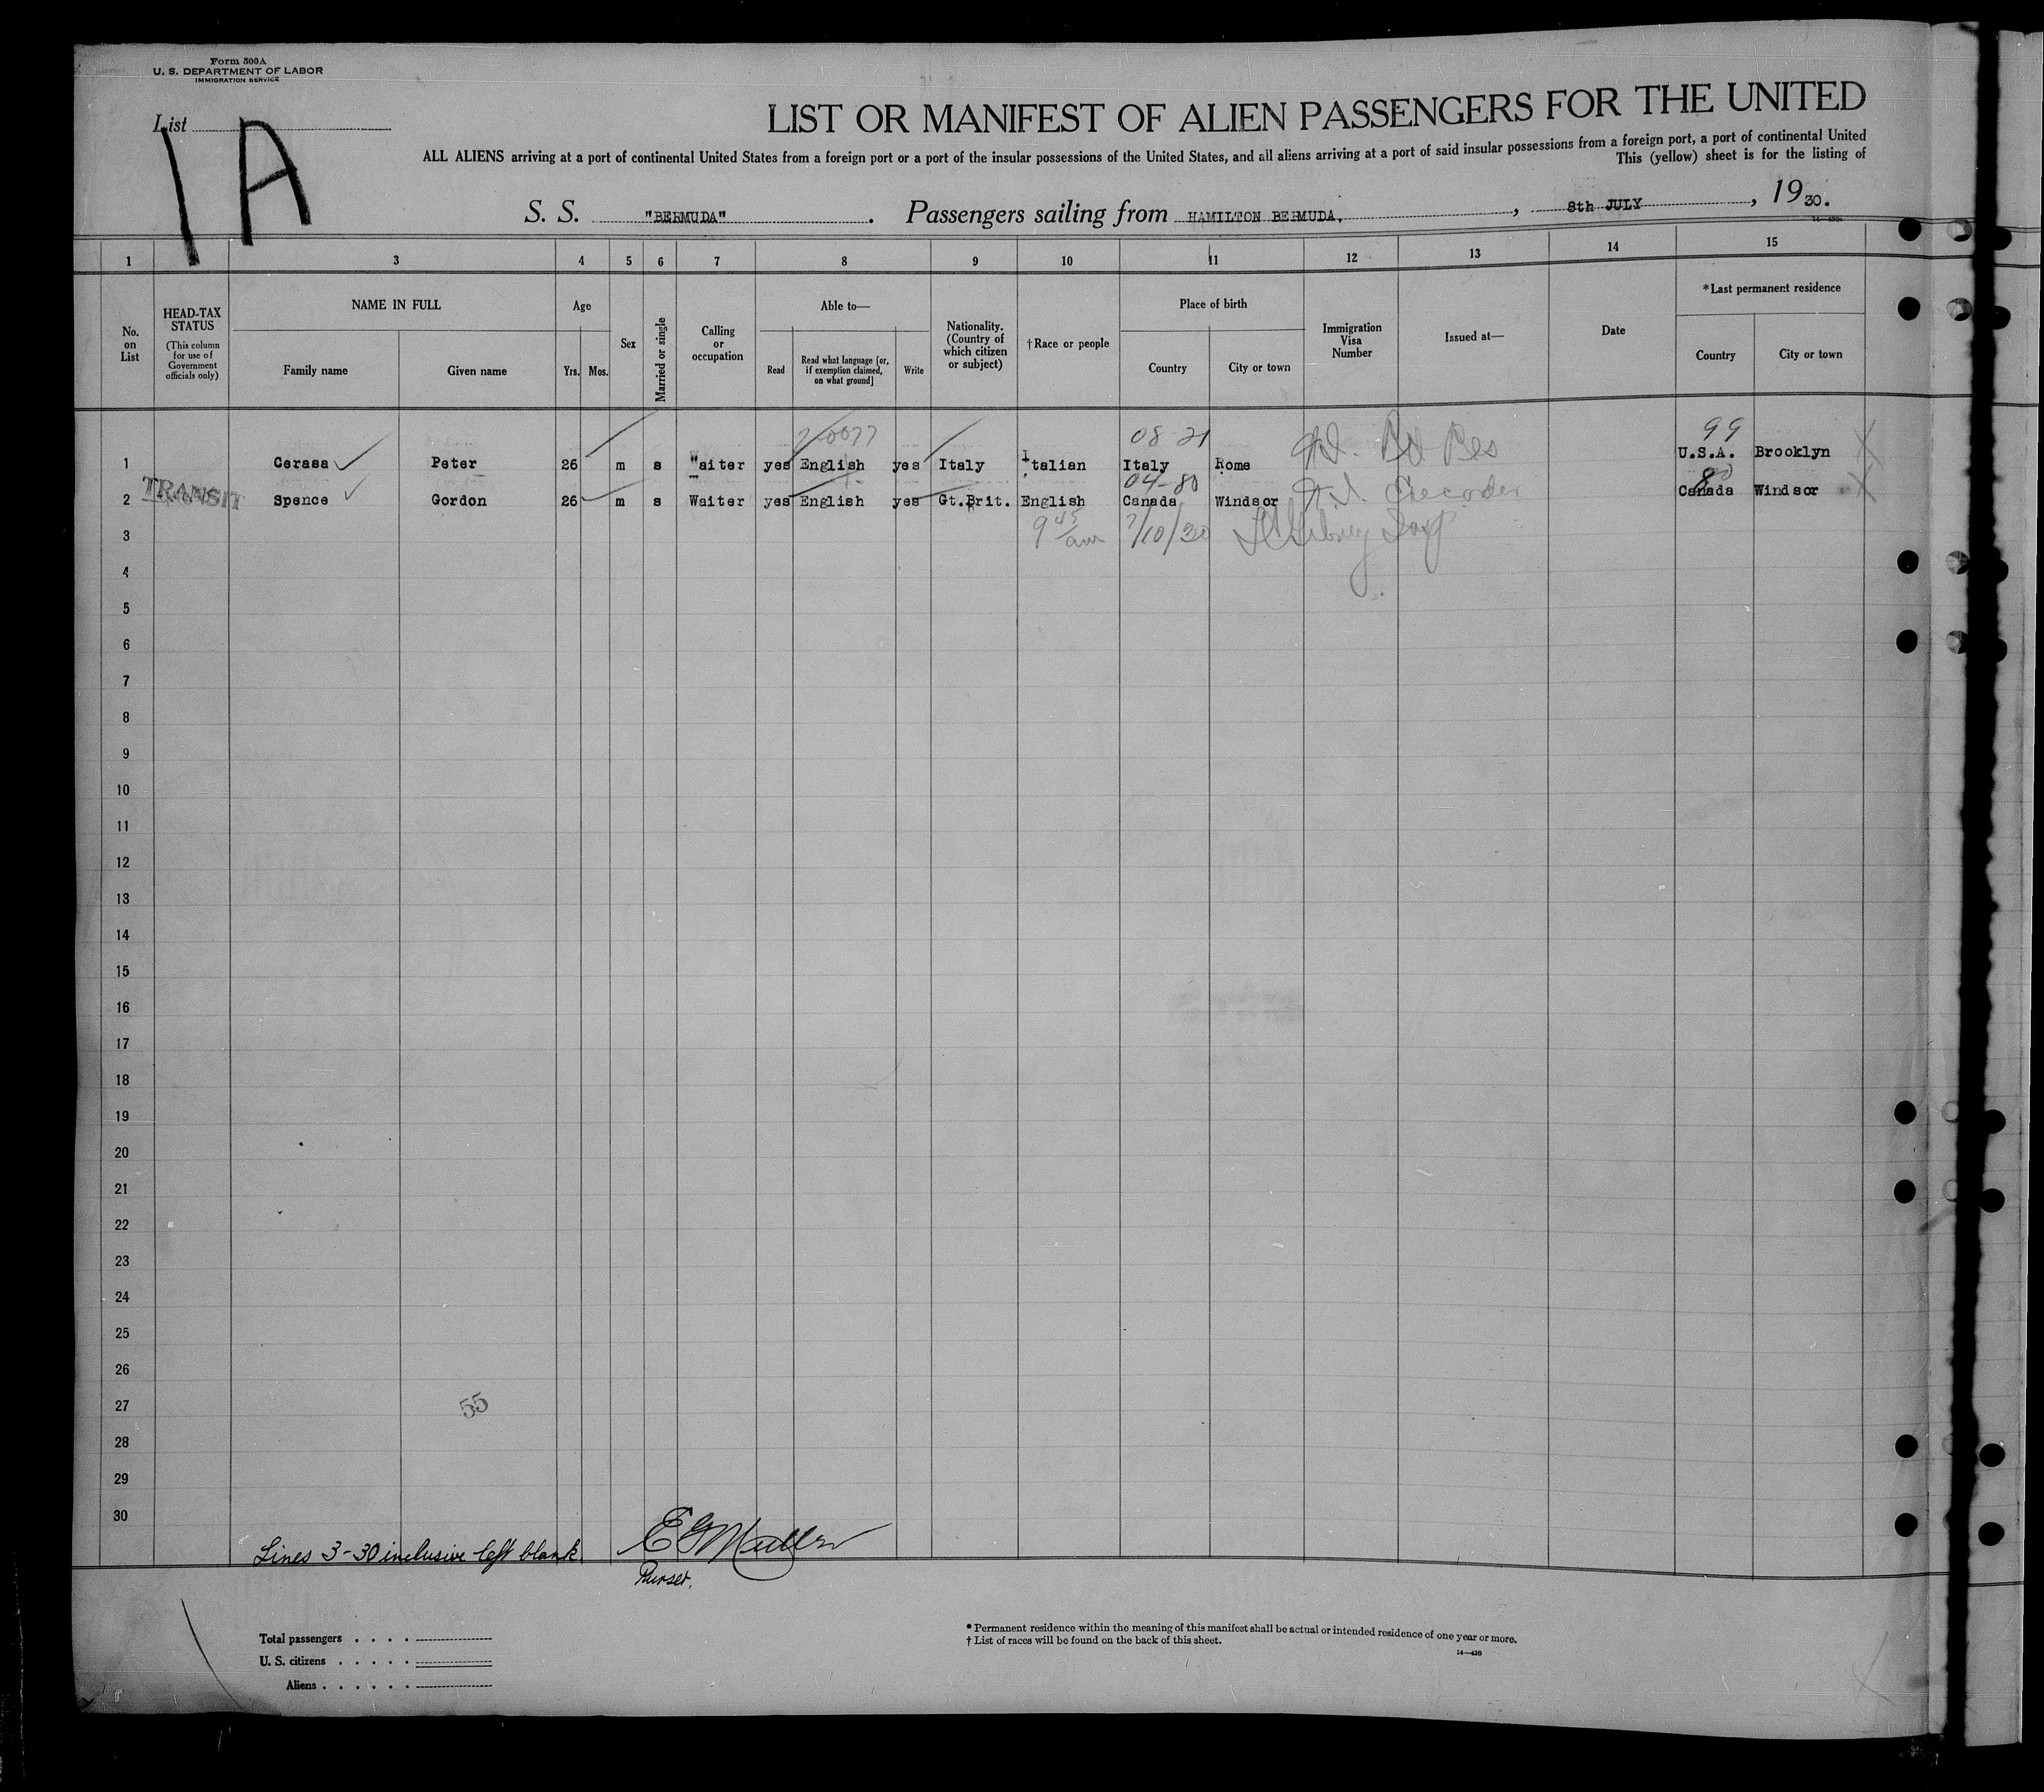 Form 500A
U. S. DEPARTMENT OF LABOR
IMMIGRATION SERVICE
List
1A
LIST OR MANIFEST OF ALIEN PASSENGERS FOR THE UNITED
ALL ALIENS arriving at a port of continental United States from a foreign port or a port of the insular possessions of the United States, and all aliens arriving at a port of said insular possessions from a foreign port, a port of continental United
This (yellow) sheet is for the listing of
S. S. "BERMUDA". Passengers sailing from HAMILTON BERMUDA, , 8th JULY , 19 30.
1 3 4 5 6 7 8 9 10 11 12 13 14 15
No. on List
HEAD-TAX STATUS
(This column for use of Government officials only)
NAME IN FULL
Family name Given name
Age
Yrs. Mos.
Sex
Married or single
Calling or occupation
Able to—
Read Read what language [or, if exemption claimed, on what ground] Write
Nationality. (Country of which citizen or subject)
†Race or people
Place of birth
Country City or town
Immigration Visa Number
Issued at—
Date
*Last permanent residence
Country City or town
08 21 99
1 Cerasa Peter 26 m s "aiter yes English yes Italy Italian Italy Rome U.S.A. Brooklyn
04-80
TRANSIT
2 Spence Gordon 26 m s Waiter yes English yes Gt.Brit. English Canada Windsor Canada Windsor
3 9 45/am 7/10/30
4
5
6
7
8
9
10
11
12
13
14
15
16
17
18
19
20
21
22
23
24
25
26
27
55
28
29
30
Lines 3-30 inclusive left blank
Purser.
Total passengers . . . .
U. S. citizens . . . . .
Aliens . . . . . .
* Permanent residence within the meaning of this manifest shall be actual or intended residence of one year or more.
† List of races will be found on the back of this sheet.
14—430